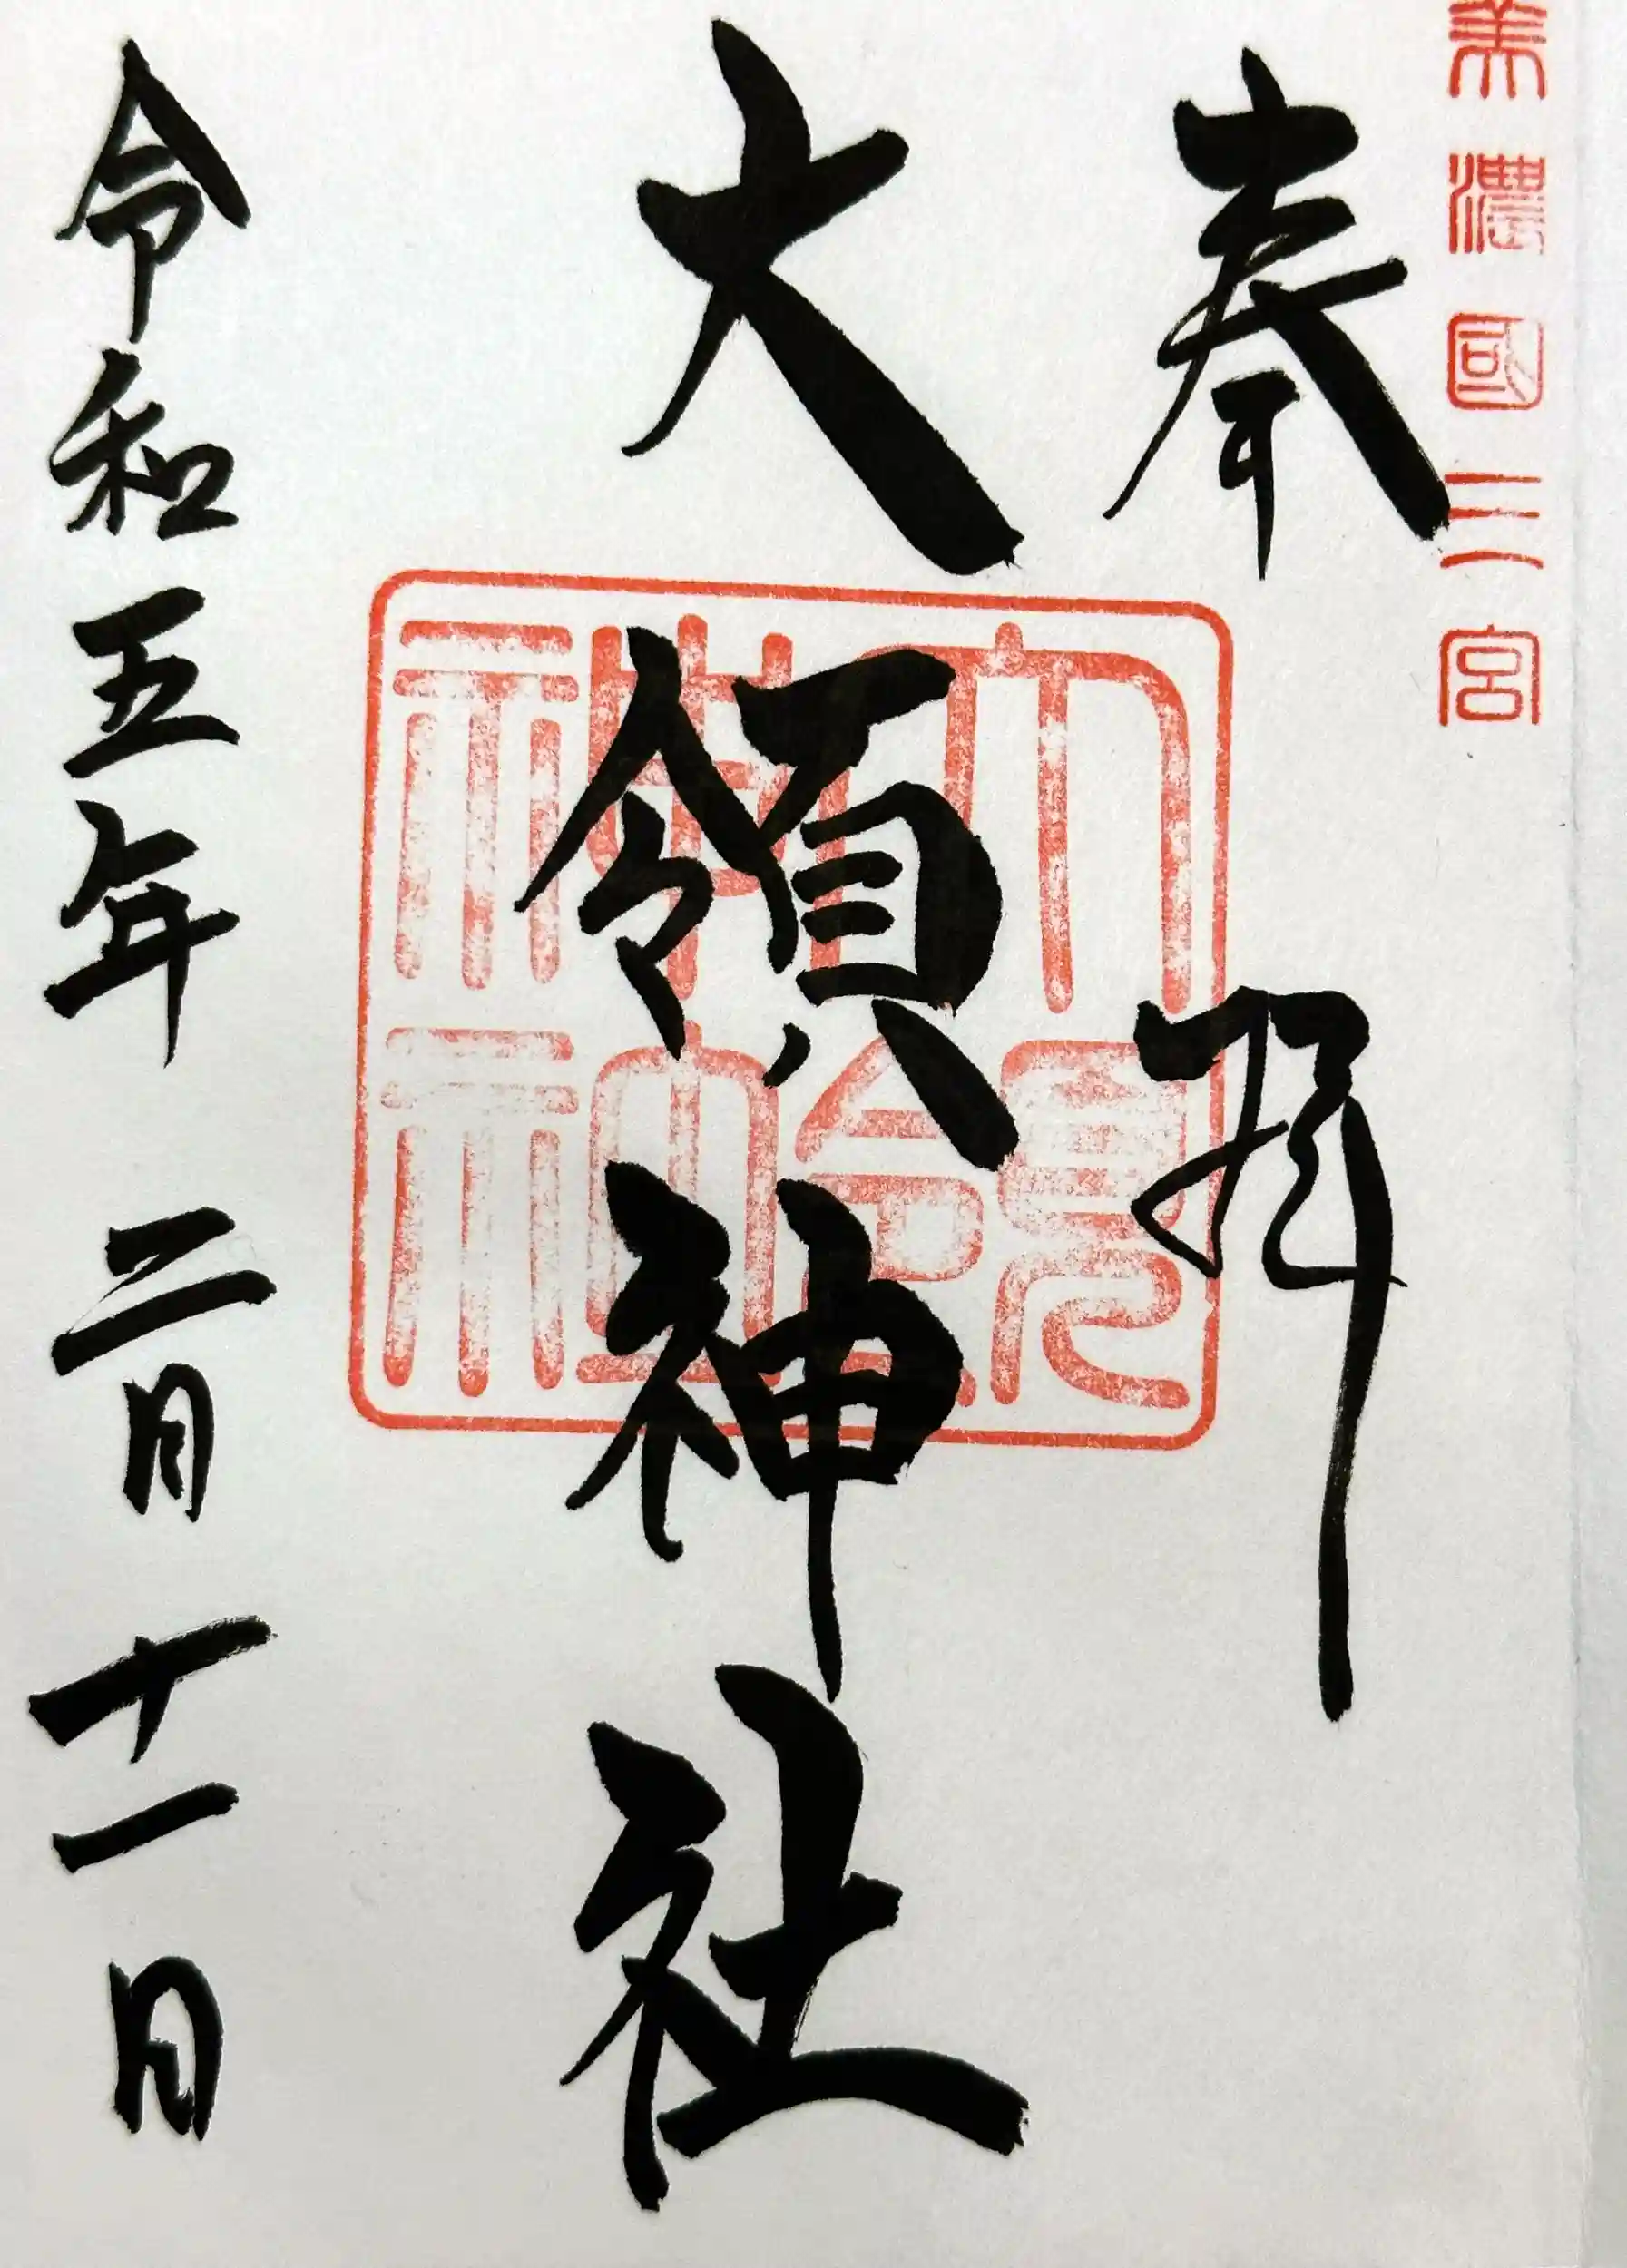 美濃國三宮
奉拝
大領神社
大領神社
令和五年二月十一日